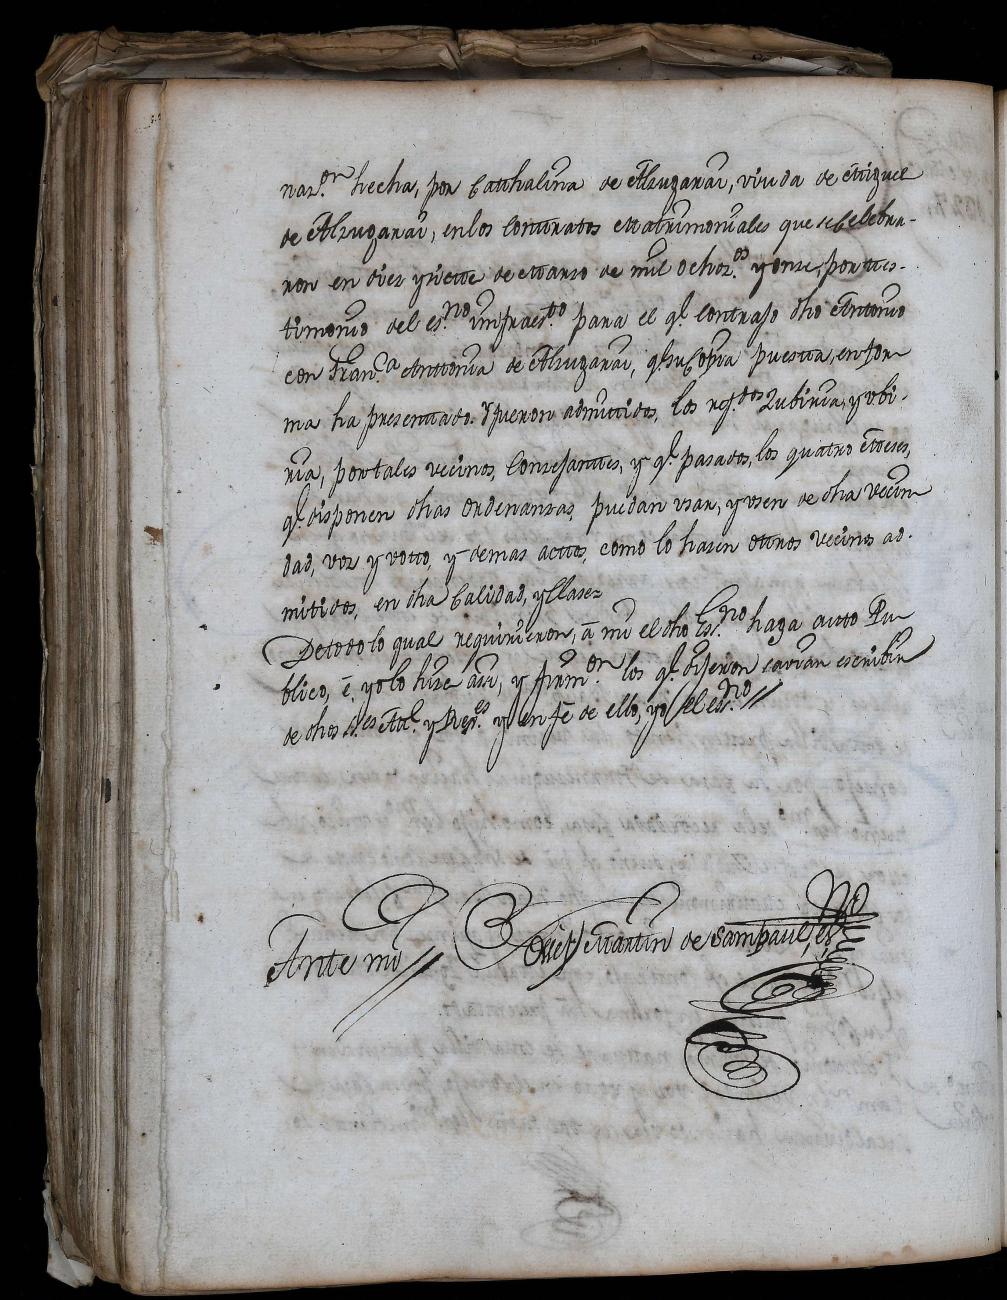 naz.on hecha, por Catthalina de Alzugarai, viuda de Miguel
de Alzugarai, en los Conttratos Matrimoniales que se Celebra-
ron en diez y siette de Marzo de mil ochoz.os y onse, por ttes-
timonio del es.no infraes.to para el q.l contrajo dho Antonio
con Fran.ca Anttonia de Alzugarai, q.e su Copia puesta, en for-
ma ha presenttado. Y fueron admitidos, los ref.dos Zubiria, y Ubi-
ria, por tales vecinos, Consejantes, y q.e pasados, los quatro meses,
q.e disponen dhas Ordenansas, puedan usar, y usen de dha vecin-
dad, voz y votto, y demas acttos, como lo hasen ottros vecinos ad-
mitidos, en dha Calidad, y Clase=
De todo lo qual requirieron, á mi el dho Es.no haga autto Pu-
blico, é, yo lo hize asi, y firm.on los q.e dijeron savian escribir
de dhos S.es Alc.l y Reg.es y en fe de ello, yo el es.no //
Ante mi // Martin de Sampaul, es.no